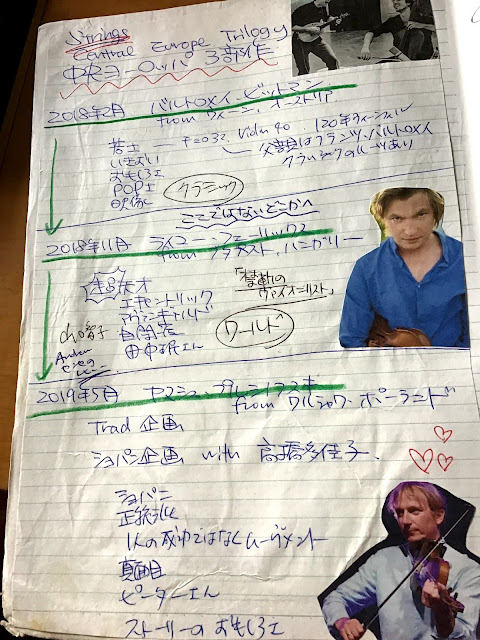 Strings
Central Europe Trilogy
中央ヨーロッパ 3部作
2018年2月 バルトロメイ・ビットマン
from ウィーン、オーストリア
若士
いきおい
おもしろエ
POP土
映像
120年ウィーンフィル
父親はフランツ・バルトロメイ
クラシックのルーツあり
クラシック
ここではないどこかへ
2018年11月 ライコー・フェーリックス
from ブダペスト、ハンガリー
天才
エキセントリック
アヴァンギャルド
自閉症
田中泯さん
「慟動の
ヴァイオニリスト」
ワールド
2019年5月 ヤヌシュ・プルシノフスキ
from ワルシャワ、ポーランド
Trad 企画
ショパン企画 with 高橋多佳子、
ショパニ
正統派
1人の成功ではなくムーヴメント
真面目
ピーターさん
ストーリーのおもしろエ